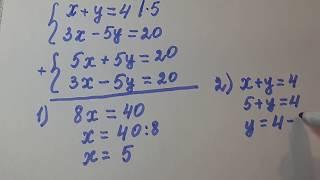 x+y=4 /·5
3x-5y=20
+ 5x+5y=20
3x-5y=20
1) 8x=40
x=40:8
x=5
2) x+y=4
5+y=4
y=4-